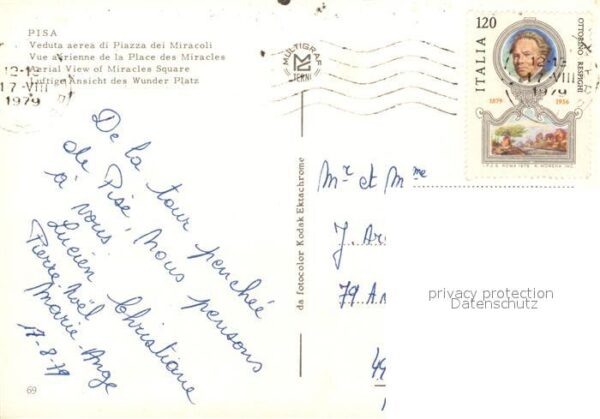 PISA
Veduta aerea di Piazza dei Miracoli
Vue aérienne de la Place des Miracles
Aerial View of Miracles Square
Luftige Ansicht des Wunder Platz
12-
17-VIII
1979
MULTIGRAF
TERNI
120
ITALIA
OTTORINO RESPIGHI
1879 1936
I.P.Z.S. ROMA 1979
12-
17-VIII
1979
De la tour penchée
de Pise, nous pensons
à vous
Lucien Christiane
Pierre-Noël
Marie-Ange
17-8-79
69
da fotocolor Kodak Ektachrome
Mr et Mme
J. Ar
79 A
privacy protection
Datenschutz